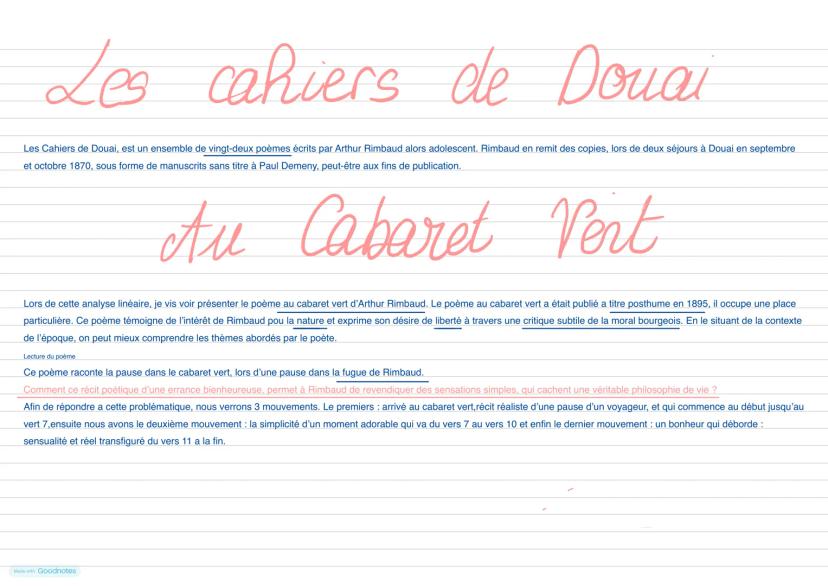 Les cahiers de Douai
Les Cahiers de Douai, est un ensemble de vingt-deux poèmes écrits par Arthur Rimbaud alors adolescent. Rimbaud en remit des copies, lors de deux séjours à Douai en septembre
et octobre 1870, sous forme de manuscrits sans titre à Paul Demeny, peut-être aux fins de publication.
Au Cabaret Vert
Lors de cette analyse linéaire, je vis voir présenter le poème au cabaret vert d'Arthur Rimbaud. Le poème au cabaret vert a était publié a titre posthume en 1895, il occupe une place
particulière. Ce poème témoigne de l'intérêt de Rimbaud pou la nature et exprime son désire de liberté à travers une critique subtile de la moral bourgeois. En le situant de la contexte
de l'époque, on peut mieux comprendre les thèmes abordés par le poète.
Lecture du poème
Ce poème raconte la pause dans le cabaret vert, lors d'une pause dans la fugue de Rimbaud.
Comment ce récit poétique d'une errance bienheureuse, permet à Rimbaud de revendiquer des sensations simples, qui cachent une véritable philosophie de vie ?
Afin de répondre a cette problématique, nous verrons 3 mouvements. Le premiers : arrivé au cabaret vert,récit réaliste d'une pause d'un voyageur, et qui commence au début jusqu'au
vert 7,ensuite nous avons le deuxième mouvement : la simplicité d'un moment adorable qui va du vers 7 au vers 10 et enfin le dernier mouvement : un bonheur qui déborde :
sensualité et réel transfiguré du vers 11 a la fin.
Made with Goodnotes